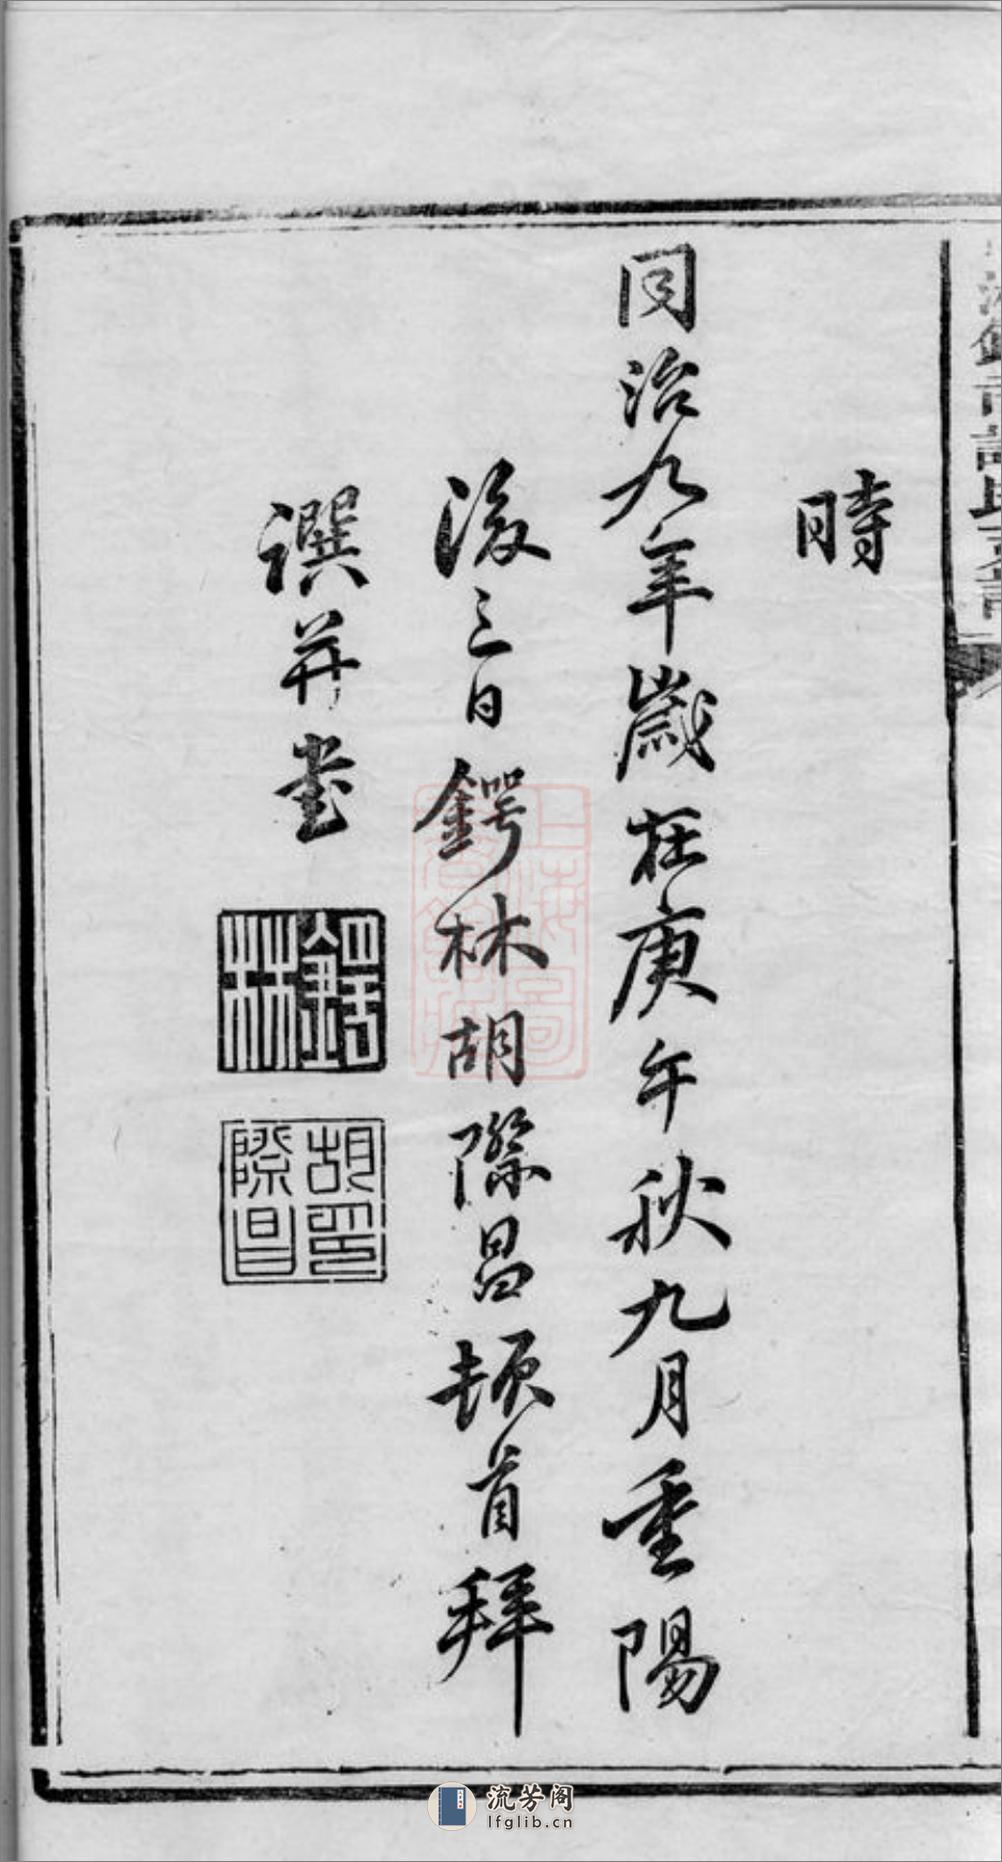 時
同治九年歲在庚午秋九月重陽
後三日鍔林胡際昌頓首拜
譔并書
鍔林
胡印際昌
流芳阁
lfglib.cn